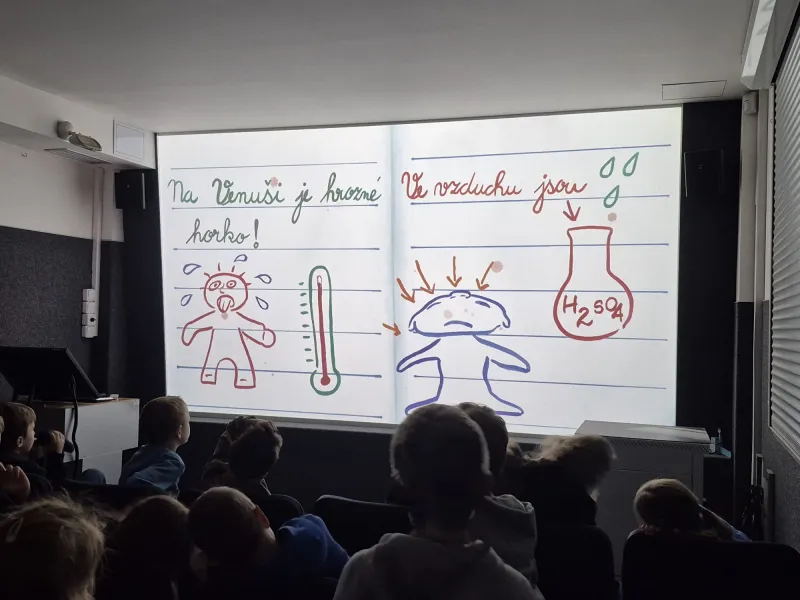 Na Venuši je hrozně
horko!
Ve vzduchu jsou
H2SO4